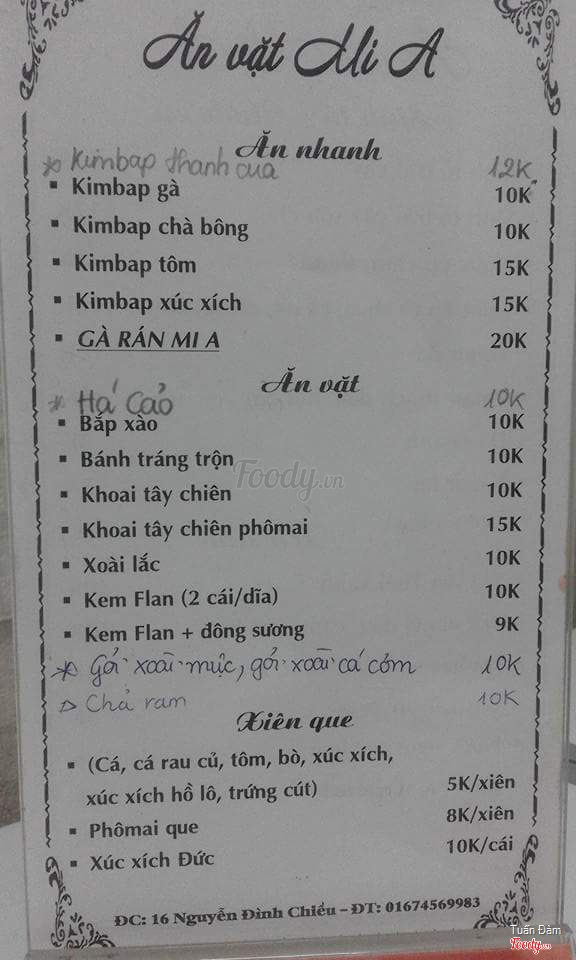 Ăn vặt Mi A
Ăn nhanh
* Kimbap thanh cua 12K
▪ Kimbap gà 10K
▪ Kimbap chà bông 10K
▪ Kimbap tôm 15K
▪ Kimbap xúc xích 15K
▪ GÀ RÁN MI A 20K
Ăn vặt
* Há Cảo 10K
▪ Bắp xào 10K
▪ Bánh tráng trộn 10K
▪ Khoai tây chiên 10K
▪ Khoai tây chiên phômai 15K
▪ Xoài lắc 10K
▪ Kem Flan (2 cái/dĩa) 10K
▪ Kem Flan + đông sương 9K
* Gỏi xoài mực, gỏi xoài cá cơm 10K
▷ Chả ram 10K
Xiên que
▪ (Cá, cá rau củ, tôm, bò, xúc xích,
xúc xích hồ lô, trứng cút) 5K/xiên
▪ Phômai que 8K/xiên
▪ Xúc xích Đức 10K/cái
ĐC: 16 Nguyễn Đình Chiểu – ĐT: 01674569983
Foody.vn
Tuấn Đàm
Foody.vn